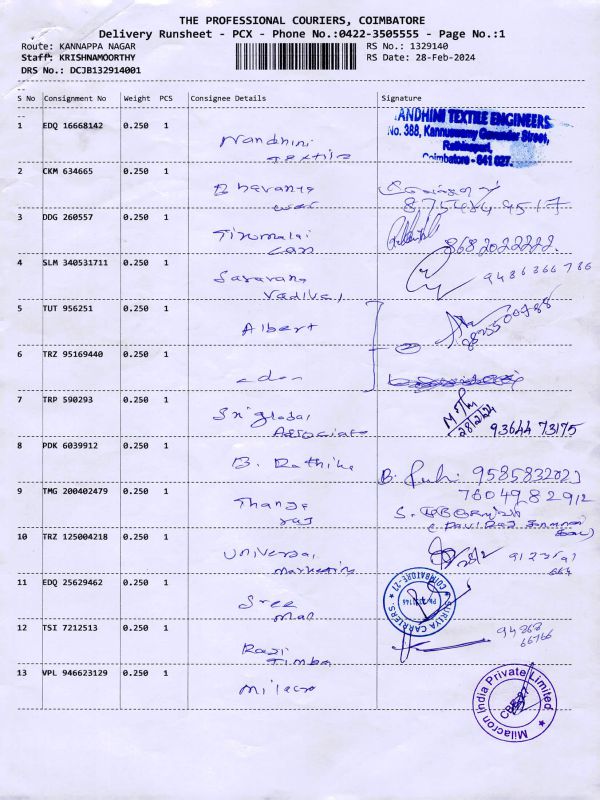 THE PROFESSIONAL COURIERS, COIMBATORE
Delivery Runsheet - PCX - Phone No.:0422-3505555 - Page No.:1
Route: KANNAPPA NAGAR
RS No.: 1329140
Staff: KRISHNAMOORTHY
RS Date: 28-Feb-2024
DRS No.: DCJB132914001
S No Consignment No Weight PCS Consignee Details Signature
1 EDQ 16668142 0.250 1
Nandhini
Textile
ANDHINI TEXTILE ENGINEERS
No. 388, Kannuswamy Gounder Street,
Rathinapuri,
Coimbatore - 641 027.
2 CKM 634665 0.250 1
Bhavania
8754849517
3 DDG 260557 0.250 1
Tirumalai
8682022222.
4 SLM 340531711 0.250 1
Saravana
Vadivel
9486366786
5 TUT 956251 0.250 1
Albert
6 TRZ 95169440 0.250 1
eden
7 TRP 590293 0.250 1
Sri global
Associate
28/2/24
93644 73175
8 PDK 6039912 0.250 1
B. Rathika
B.
9585832023
9 TMG 200402479 0.250 1
Thanga
raj
7604982912
S.
10 TRZ 125004218 0.250 1
Universal
marketing
11 EDQ 25629462 0.250 1
Sree
SURIYA CARRIERS
COIMBATORE-27
12 TSI 7212513 0.250 1
Raji
Timba
94868
66766
13 VPL 946623129 0.250 1
Milacro
Milacron India Private Limited
CBE-27